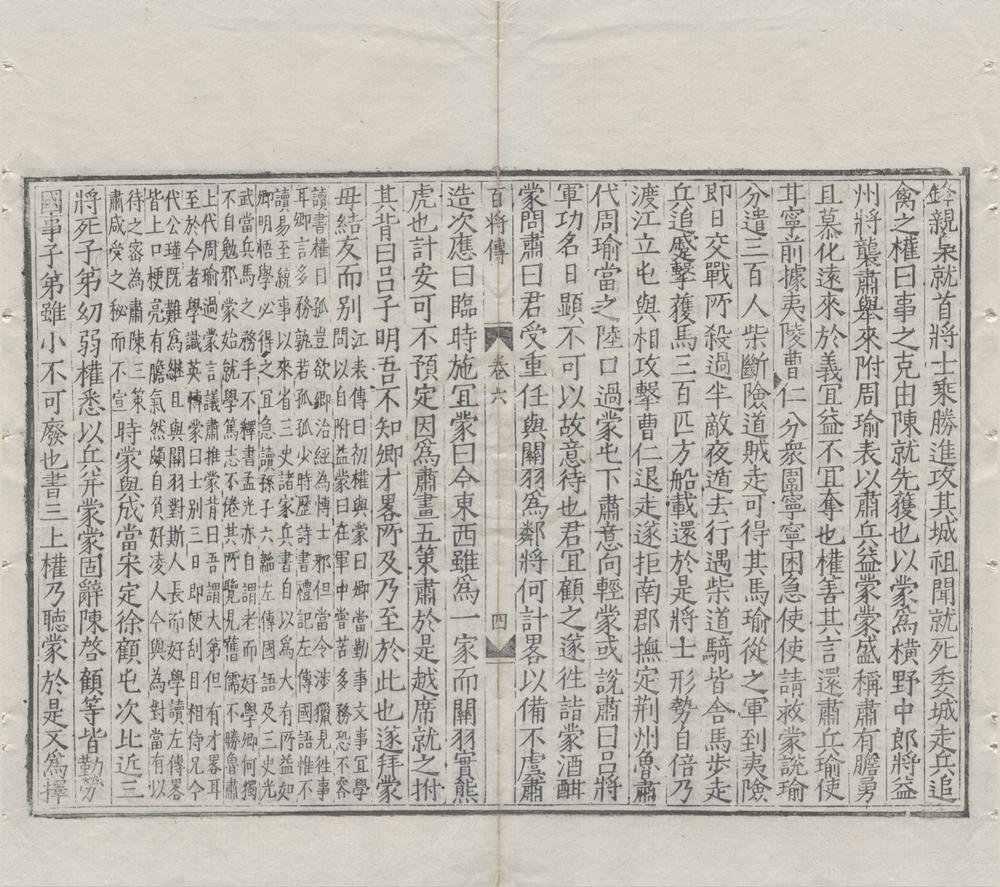 鋒親梟就首將士乘勝進攻其城祖聞就死委城走兵追
禽之權曰事之克由陳就先獲也以蒙爲橫野中郎將益
州將襲肅舉來附周瑜表以肅兵益蒙蒙盛稱肅有膽勇
且慕化遠來於義宜益不宜奪也權善其言還肅兵瑜使
甘寧前據夷陵曹仁分衆圍寧寧困急使使請救蒙說瑜
分遣三百人柴斷險道賊走可得其馬瑜從之軍到夷險
即日交戰所殺過半敵夜遁去行遇柴道騎皆舍馬步走
兵追蹙擊獲馬三百匹方船載還於是將士形勢自倍乃
渡江立屯與相攻擊曹仁退走遂拒南郡撫定荆州魯肅
代周瑜當之陸口過蒙屯下肅意向輕蒙或說肅曰吕將
軍功名日顯不可以故意待也君宜顧之遂徃詣蒙酒酣
蒙問肅曰君受重任與關羽爲鄰將何計畧以備不虞肅
百將傳 卷六 四
造次應曰臨時施宜蒙曰今東西雖爲一家而關羽實熊
虎也計安可不預定因爲肅畫五策肅於是越席就之拊
其背曰吕子明吾不知卿才畧所及乃至於此也遂拜蒙
母結友而别
江表傳曰初權與蒙曰卿當勤事文事宜學
問以自附益蒙曰在軍中當苦多務恐不容
讀書權曰孤豈欲卿治經為博士邪但當令涉獵見徃事
耳卿言多務孰若孤孤少時歷詩書禮記左傳國語惟不
讀易至統事以來省三史諸家兵書自以爲大有所益如
卿明悟學必得之宜急讀孫子六韜左傳國語及三史光
武當兵馬之務手不釋書孟光亦自謂老而好學卿何獨
不自勉邪蒙始就學篤志不倦其所覽見舊儒不勝魯肅
上代周瑜過蒙言議肅推蒙背曰吾謂大弟但有才畧耳
至於今者學識英博蒙曰士别三日即便刮目相待兄今
代公瑾既難爲繼且與關羽對斯人長而好學讀左傳畧
皆上口梗亮有膽氣然頗自負好凌人今與為對當有以
待之宻為肅陳三策
肅咸受之秘而不宣
時蒙與成當宋定徐顧屯次比近三
將死子弟幼弱權悉以兵并蒙蒙固辭陳啓顧等皆勤勞
國事子弟雖小不可廢也書三上權乃聽蒙於是又爲擇